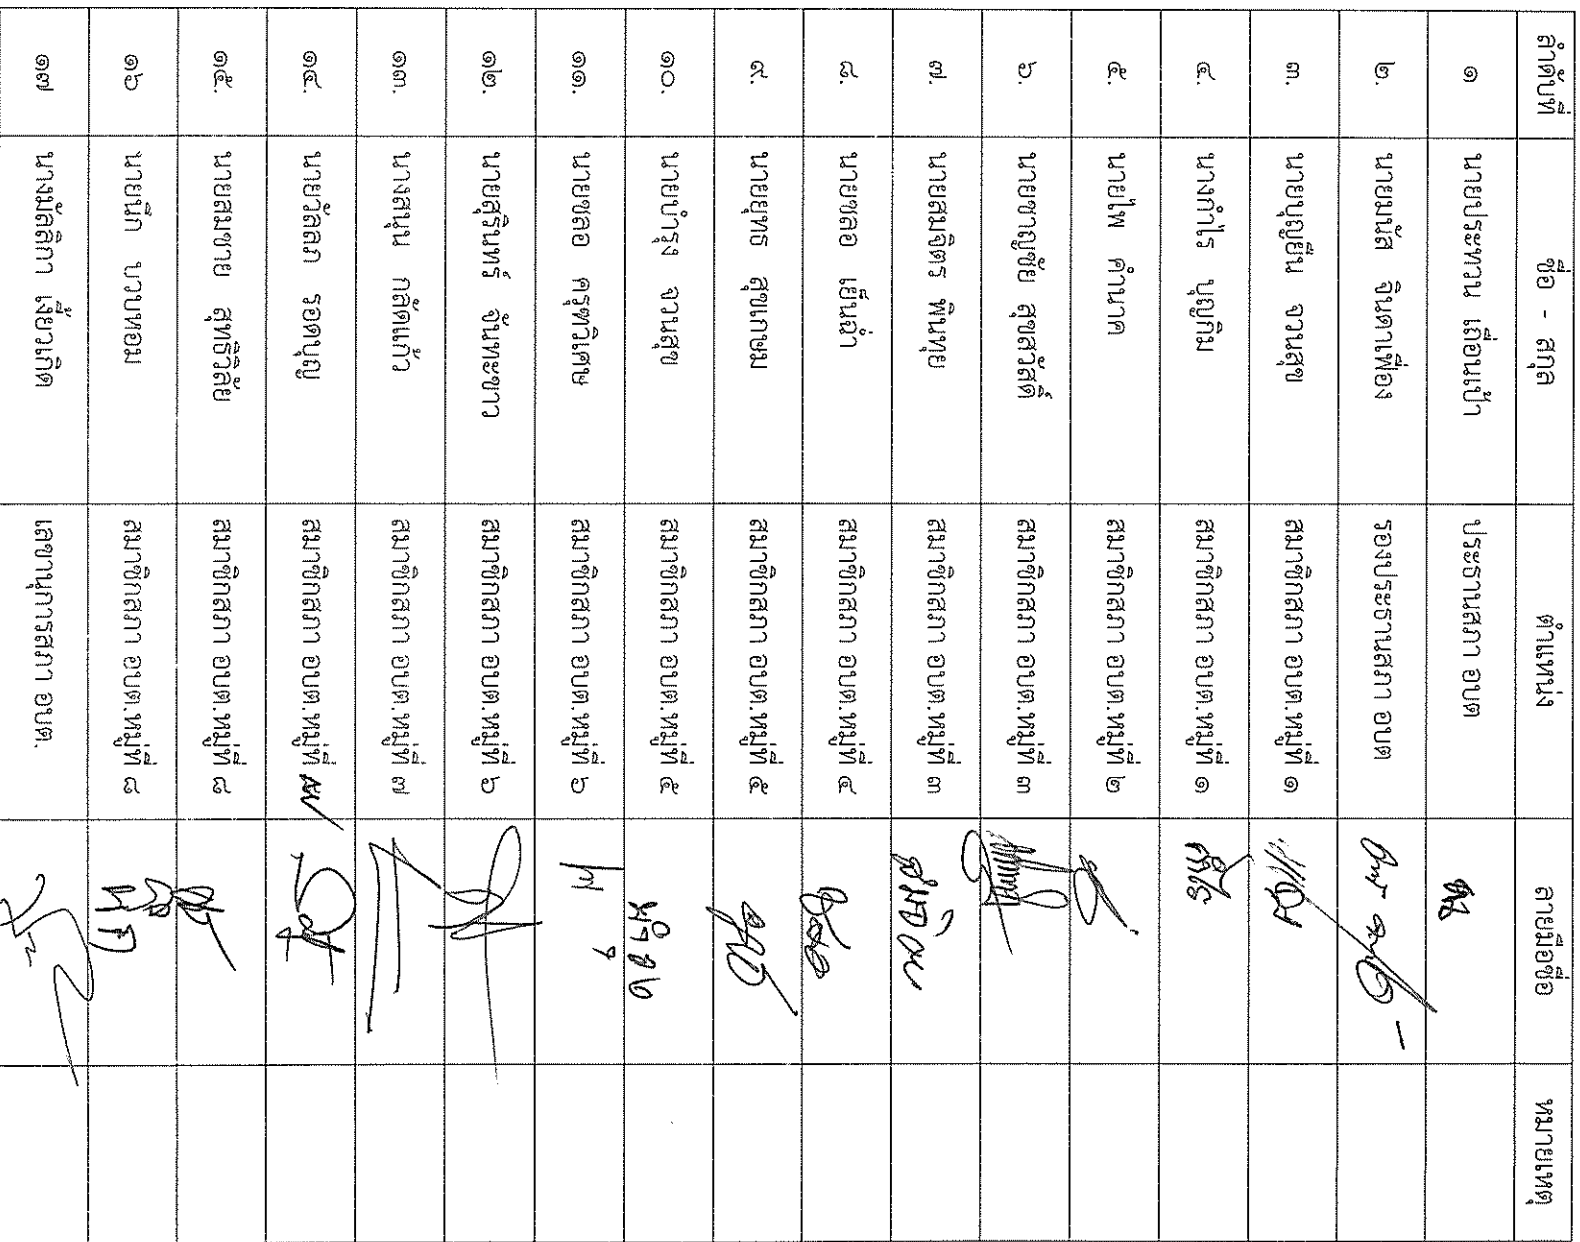 ลำดับที่ ชื่อ - สกุล ตำแหน่ง ลายมือชื่อ หมายเหตุ
๑ นายประทวน เถื่อนเป้า ประธานสภา อบต
๒. นายมนัส จินดาเฟื่อง รองประธานสภา อบต
๓. นายบุญยืน จวนสุข สมาชิกสภา อบต.หมู่ที่ ๑
๔. นางกำไร บุญกิม สมาชิกสภา อบต.หมู่ที่ ๑ กำไร
๕. นายไพ คำนาค สมาชิกสภา อบต.หมู่ที่ ๒
๖. นายชาญชัย สุขสวัสดิ์ สมาชิกสภา อบต.หมู่ที่ ๓
๗. นายสมจิตร พินทุย สมาชิกสภา อบต.หมู่ที่ ๓
๘. นายชลอ เย็นฉ่ำ สมาชิกสภา อบต.หมู่ที่ ๔ ชลอ
๙. นายยุทธ สุขเกษม สมาชิกสภา อบต.หมู่ที่ ๕
๑๐. นายบำรุง จวนสุข สมาชิกสภา อบต.หมู่ที่ ๕
๑๑. นายชลอ ครุฑวิเศษ สมาชิกสภา อบต.หมู่ที่ ๖
๑๒. นายสุรินทร์ จันทะขาว สมาชิกสภา อบต.หมู่ที่ ๖
๑๓. นางสนุน กลัดแก้ว สมาชิกสภา อบต.หมู่ที่ ๗
๑๔. นายวัลลภ รอดบุญ สมาชิกสภา อบต.หมู่ที่
๑๕. นายสมชาย สุทธิวิลัย สมาชิกสภา อบต.หมู่ที่ ๘
๑๖ นายนิก นาบหอม สมาชิกสภา อบต.หมู่ที่ ๘
๑๗ นางมัลลิกา เงี้ยวเกิด เลขานุการสภา อบต.